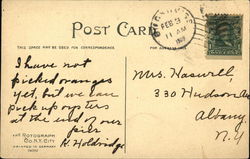 POST CARD
THIS SPACE MAY BE USED FOR CORRESPONDENCE
FEB 3
11 AM
I have not
picked oranges
yet, but we can
pick up oysters
at the end of our
pier
K. Holdridge
Mrs. Haswell,
330 Hudson Av
Albany,
N.Y.
THE ROTOGRAPH
CO. N.Y. CITY
PRINTED IN GERMANY